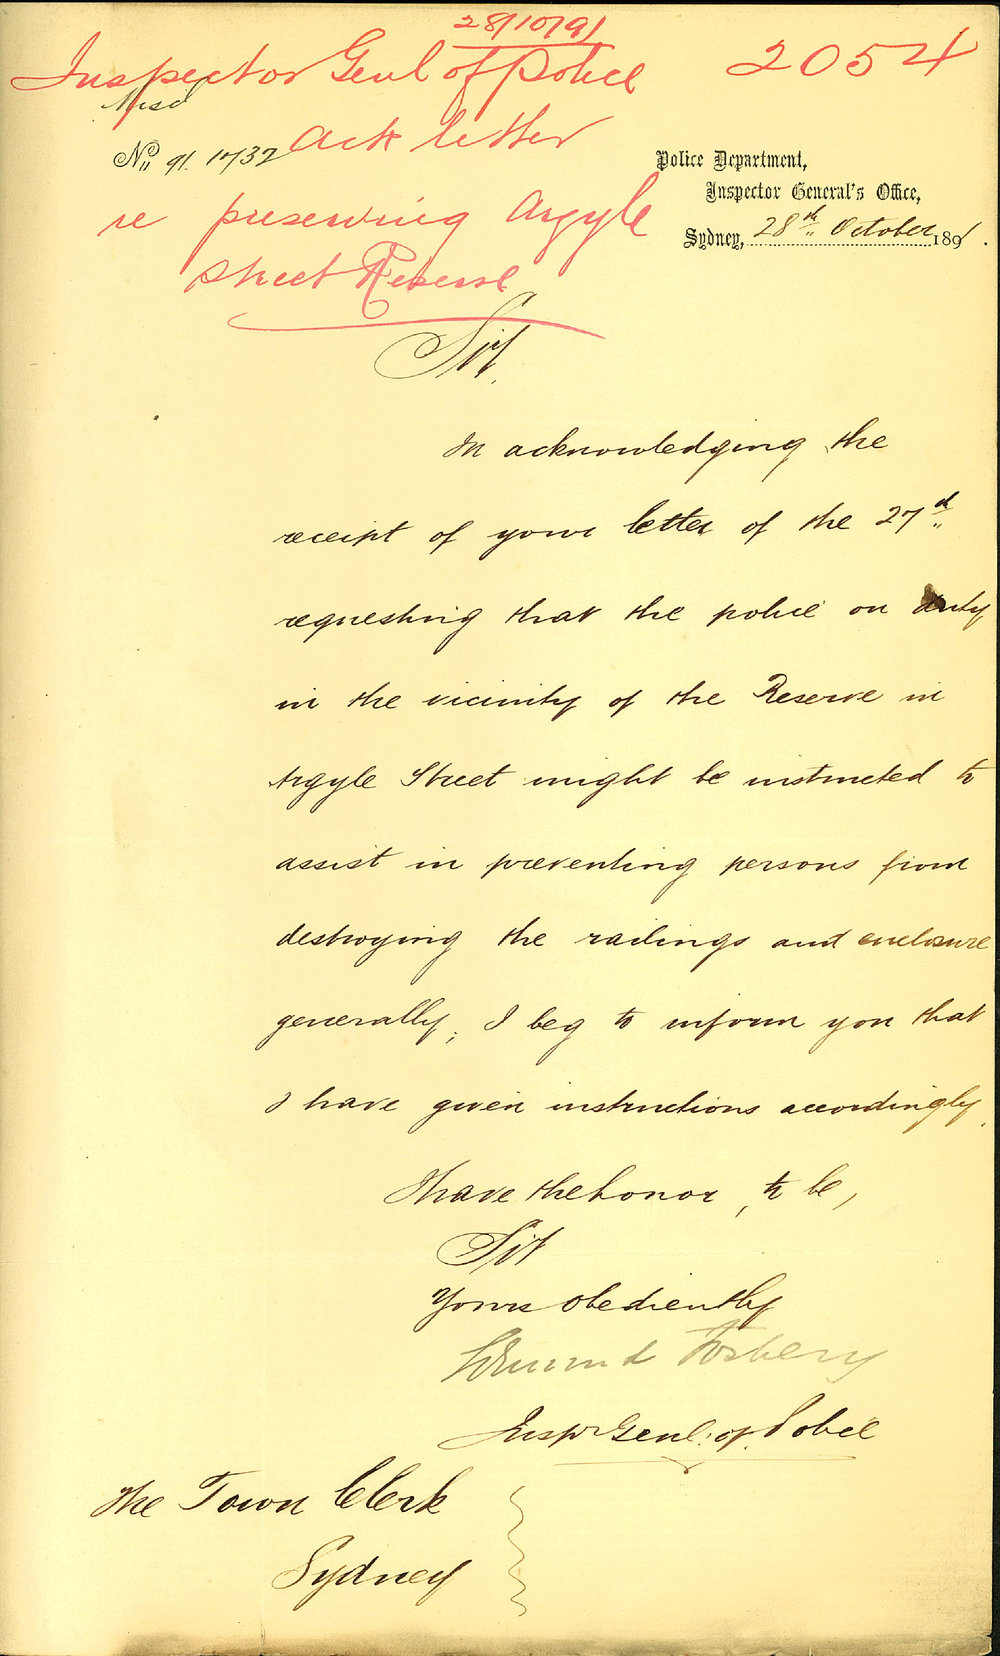 28/10/91
Inspector Genl of Police 2054
Misc
No 91. 1732 Ack letter
Police Department,
Inspector General's Office,
re preserving Argyle
Sydney, 28th October 1891.
Street Reserve
Sir,
In acknowledging the
receipt of your letter of the 27d
requesting that the police on duty
in the vicinity of the Reserve in
Argyle Street might be instructed to
assist in preventing persons from
destroying the railings and enclosure
generally; I beg to inform you that
I have given instructions accordingly.
I have the honor, to be,
Sir
Yours obediently
Edmund Fosbery
Inspr Genl: of Police
The Town Clerk
Sydney